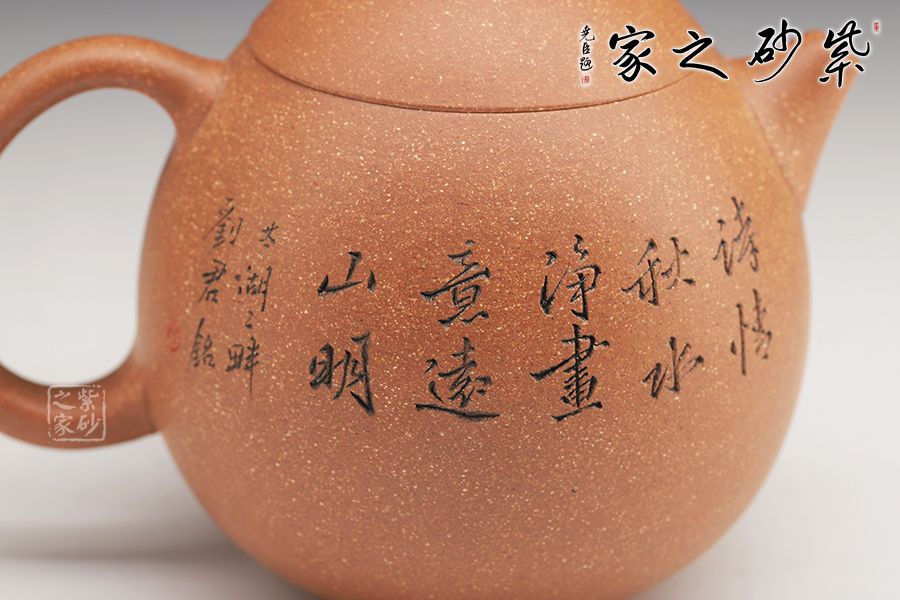 紫砂之家
堯臣題
詩情
秋水
净畫
意遠
山明
太湖之畔
劉君銘
紫砂
之家